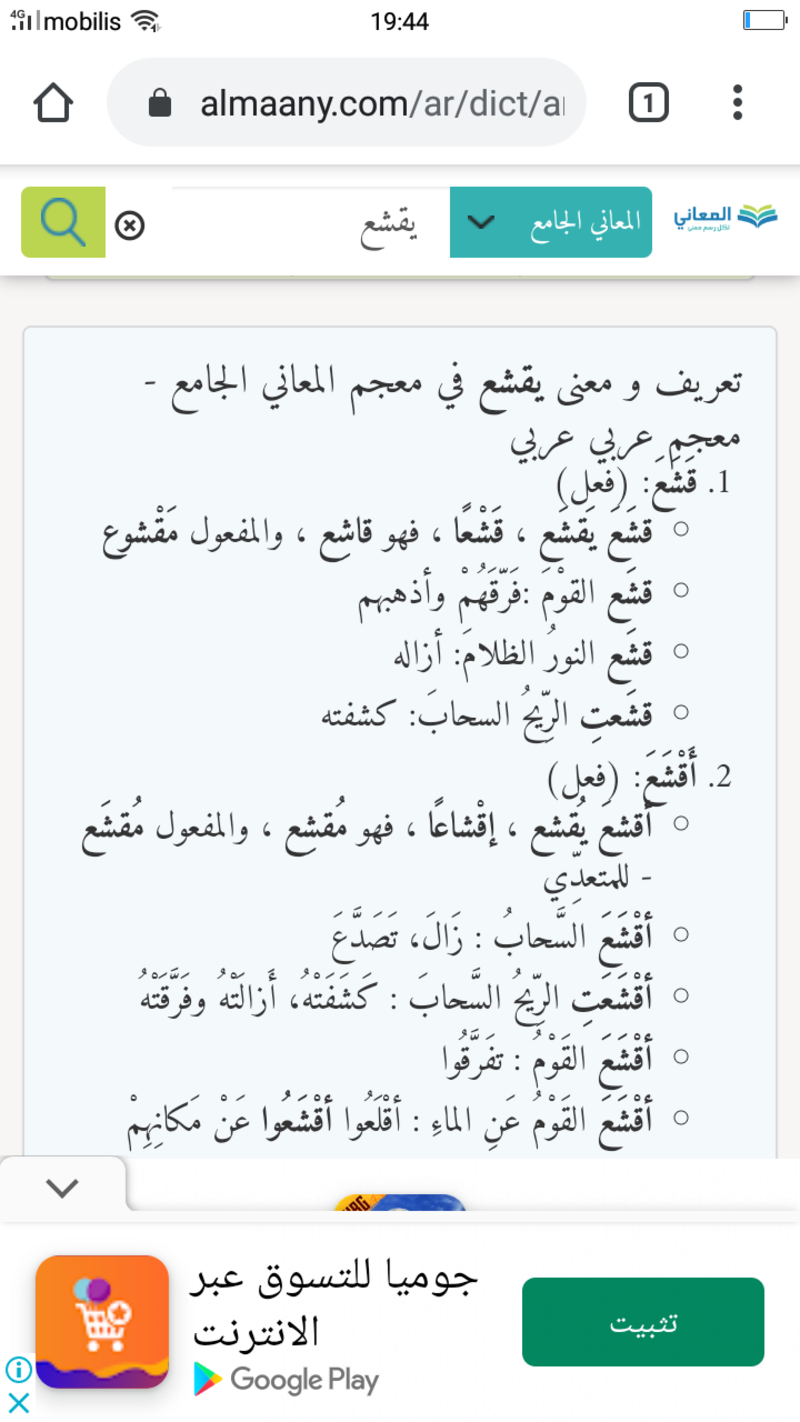 4G mobilis 19:44
almaany.com/ar/dict/a
1
المعاني
لكل رسم معنى
المعاني الجامع
يقشع
تعريف و معنى يقشع في معجم المعاني الجامع -
معجم عربي عربي
1. قَشَعَ: (فعل)
قشَعَ يَقشَع ، قَشْعًا ، فهو قاشِع ، والمفعول مَقْشوع
قشَع القوْمَ :فَرّقَهُمْ وأذهبهم
قشَع النورُ الظلامَ: أزاله
قشَعتِ الرِّيحُ السحابَ: كشفته
2. أَقْشَعَ: (فعل)
أقشعَ يُقشع ، إقْشاعًا ، فهو مُقشِع ، والمفعول مُقشَع
- للمتعدِّي
أقْشَعَ السَّحابُ : زَالَ، تَصَدَّعَ
أقْشَعَتِ الرِّيحُ السَّحابَ : كَشَفَتْهُ، أَزالَتْهُ وفَرَّقَتْهُ
أقْشَعَ القَوْمُ : تفَرَّقُوا
أقْشَعَ القَوْمُ عَنِ الماءِ : أقْلَعُوا أقْشَعُوا عَنْ مَكانِهِمْ
جوميا للتسوق عبر
الانترنت
Google Play
تثبيت